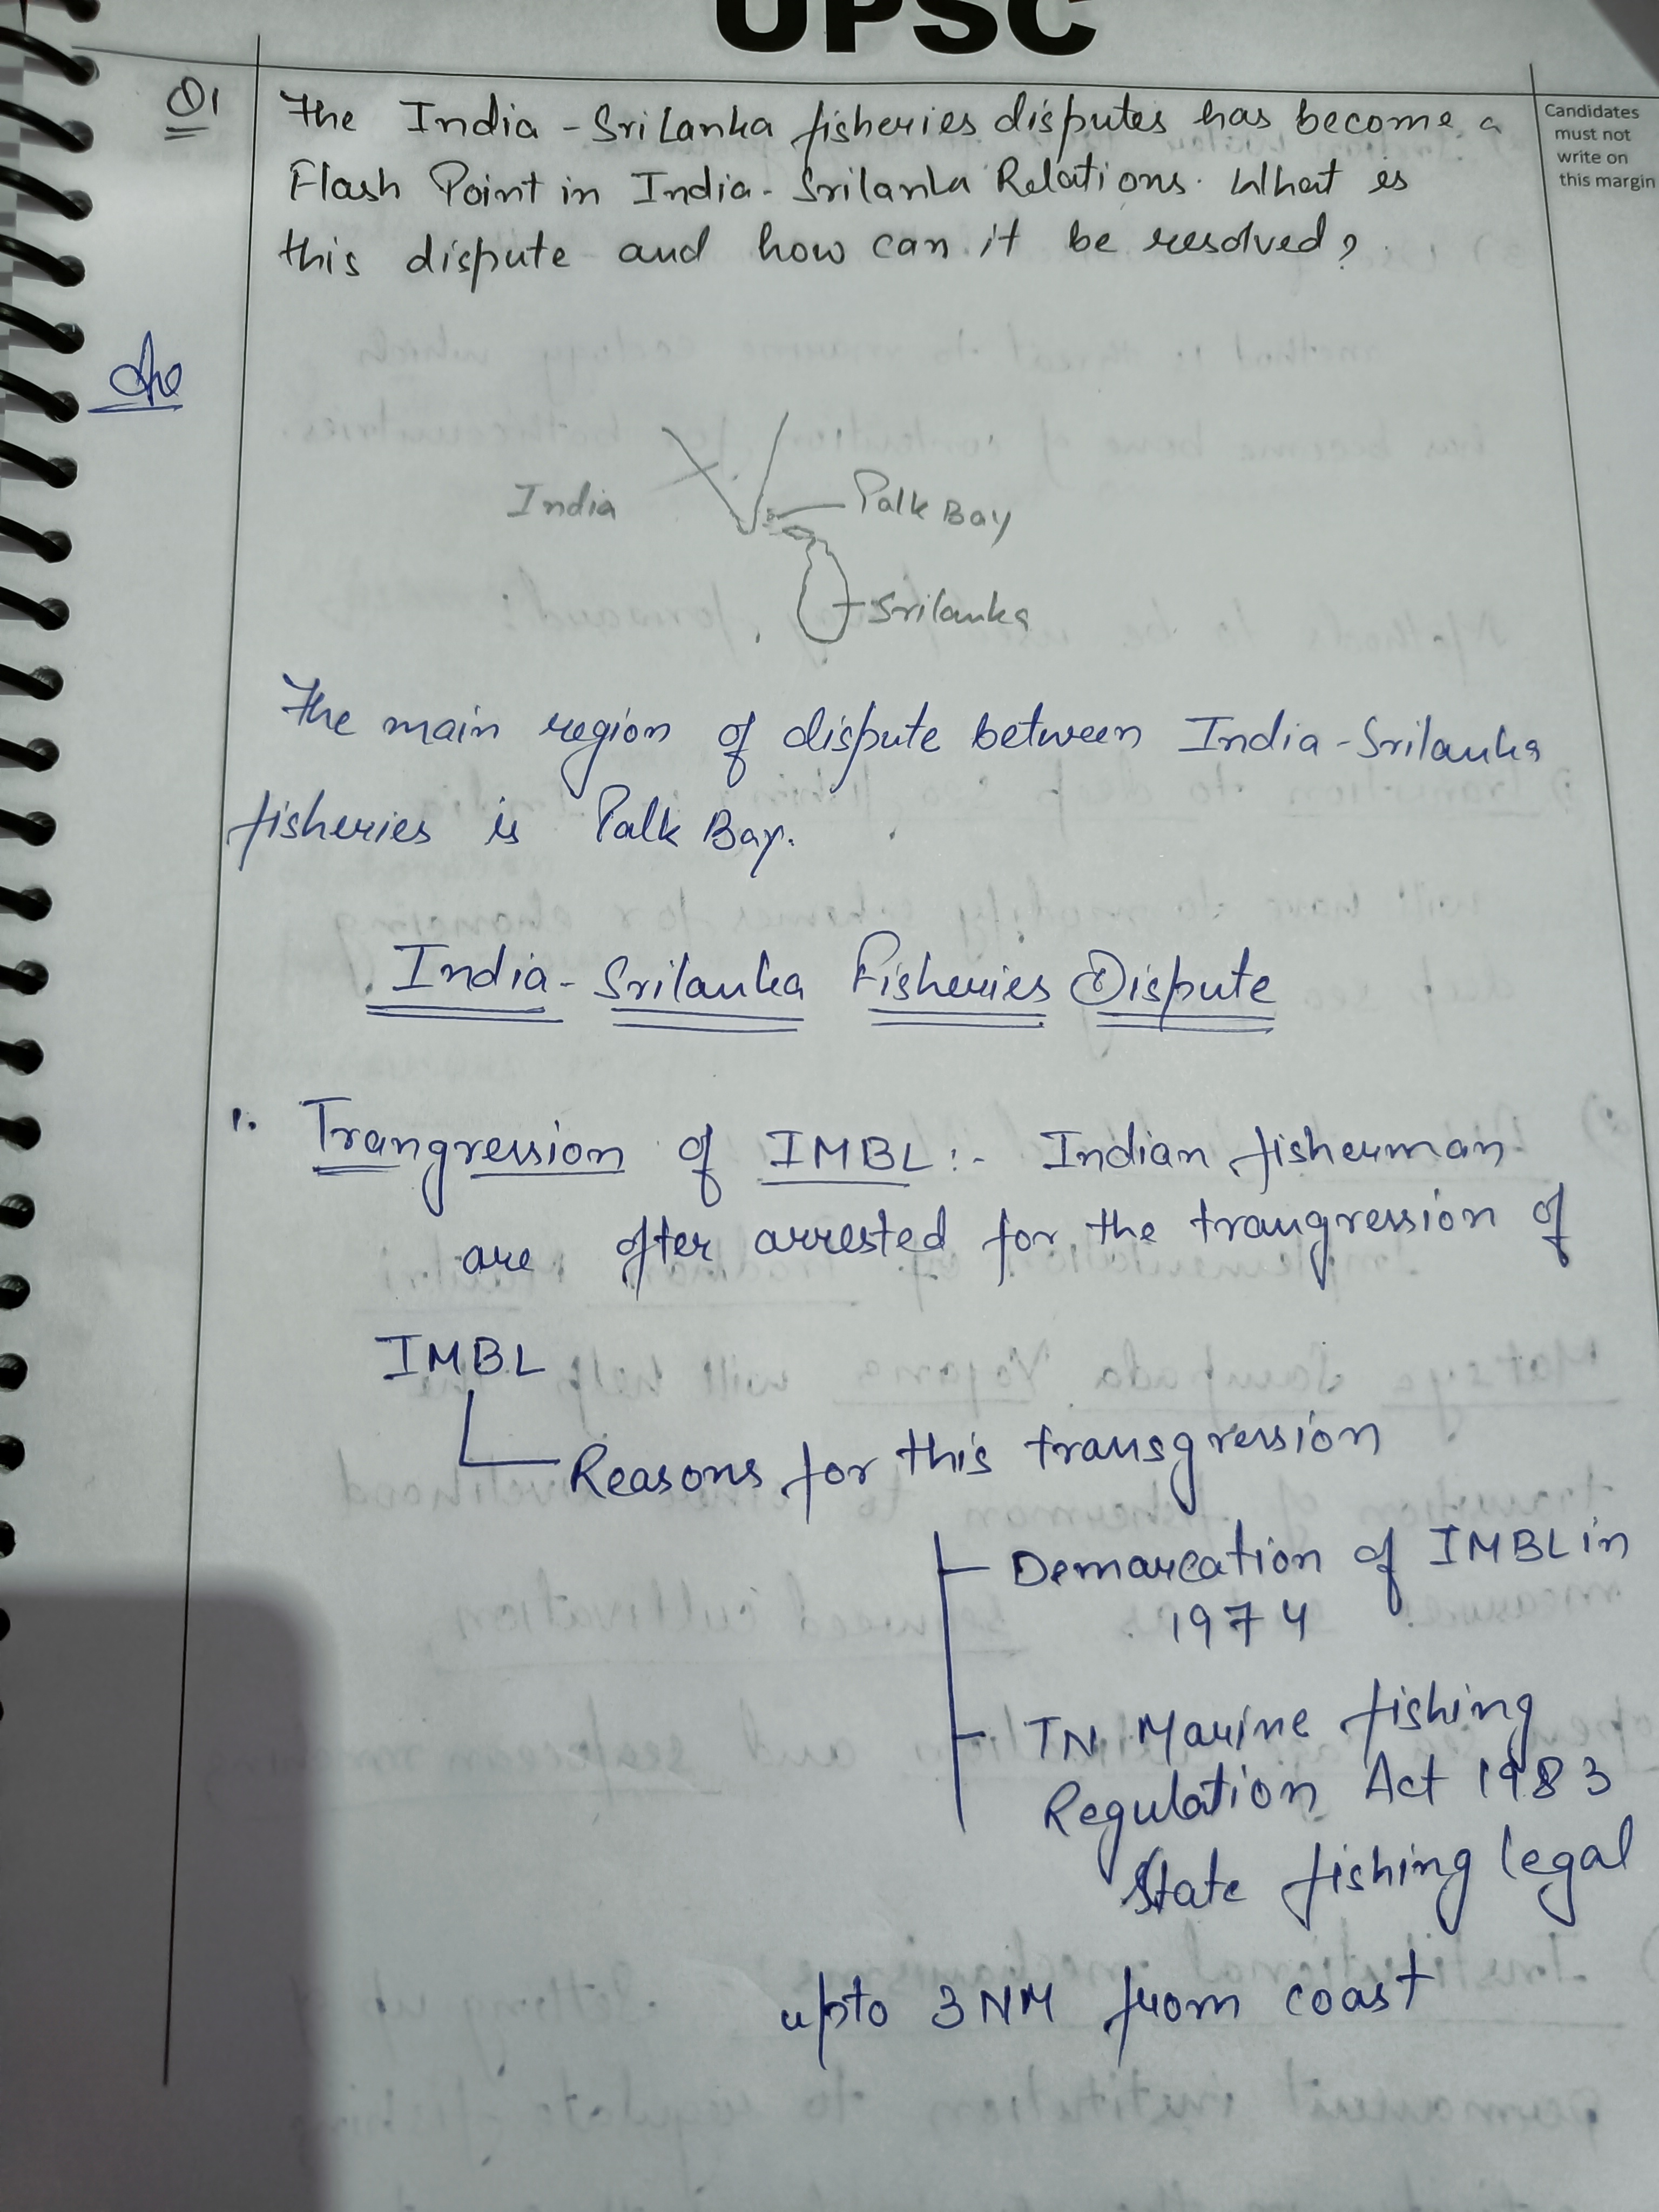 UPSC
Q1 The India - SriLanka fisheries disputes has become a
Flash Point in India - Srilanka Relations. What is
this dispute and how can it be resolved?
Candidates
must not
write on
this margin
India
Palk Bay
Srilanka
The main region of dispute between India - Srilanka
fisheries is Palk Bay.
India - Srilanka Fisheries Dispute
1. Trangression of IMBL :- Indian fisherman
are after arrested for the trangression of
IMBL
Reasons for this transgression
Demarcation of IMBL in
1974
TN Marine fishing
Regulation Act 1983
State fishing legal
upto 3 NM from coast